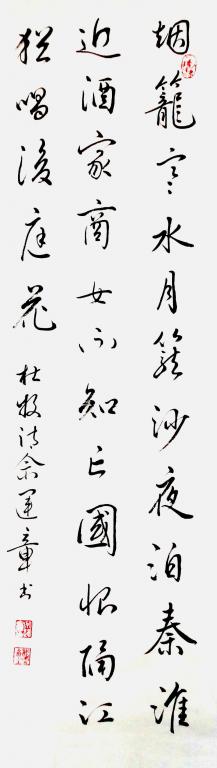 烟籠寒水月籠沙夜泊秦淮
近酒家商女不知亡國恨隔江
猶唱後庭花 杜牧诗余運章书